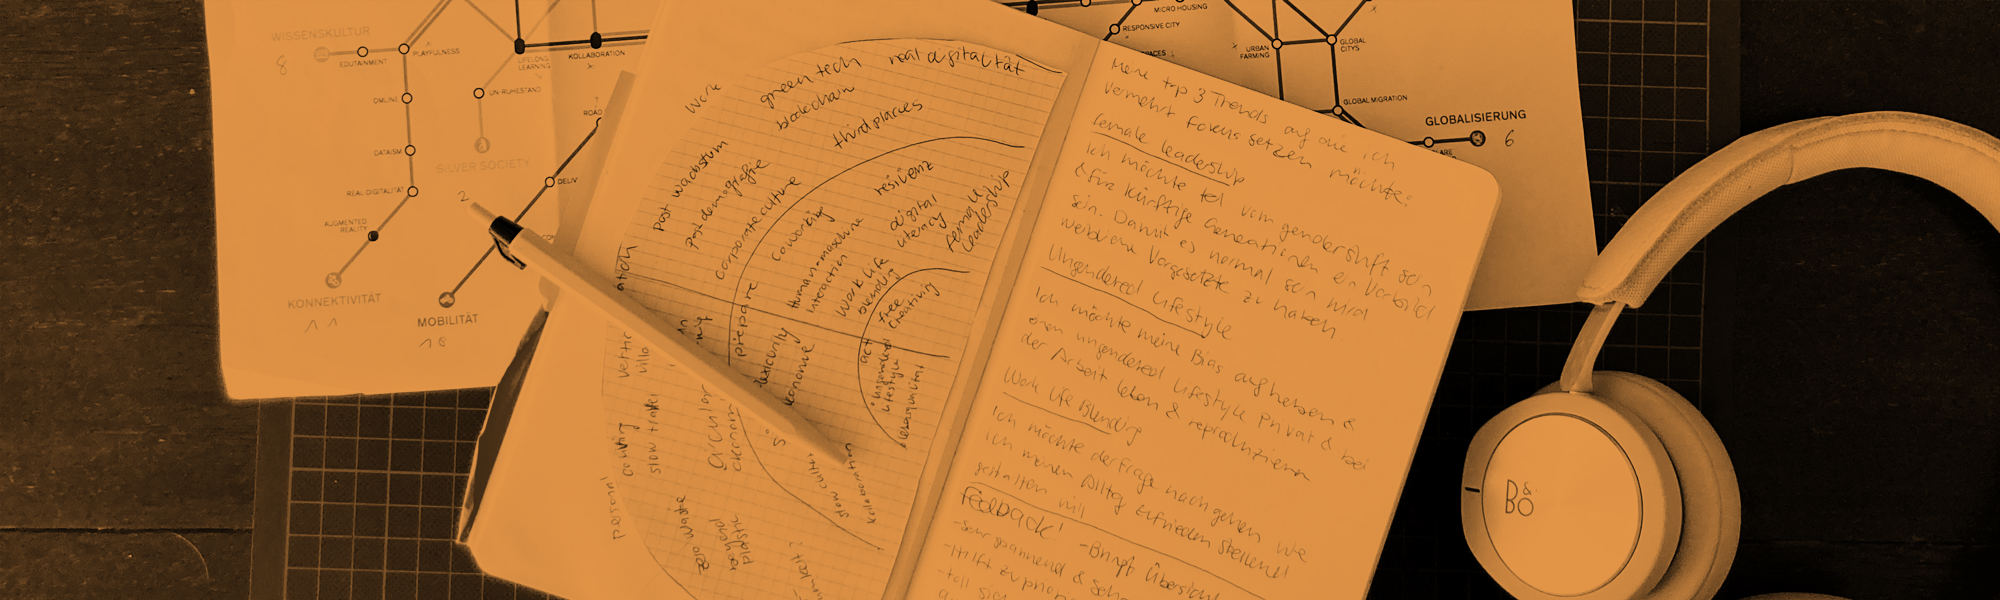 WISSENSKULTUR
8
EDUTAINMENT
PLAYFULNESS
LIFELONG
LEARNING
KOLLABORATION
OMLINE
UN-RUHESTAND
DATAISM
SILVER SOCIETY
2
REAL DIGITALITÄT
AUGMENTED
REALITY
KONNEKTIVITÄT
11
ROAD
DELIV
MOBILITÄT
10
MICRO HOUSING
RESPONSIVE CITY
SPACES
URBAN
FARMING
GLOBAL
CITYS
GLOBAL MIGRATION
GLOBALISIERUNG
6
Work
green tech
real digitalität
blockchain
third places
post wachstum
Postdemografie
corporate culture
coworking
resilienz
Human-maschine
interaction
digital
literacy
Female
Leadership
Work Life
blending
free
Creativity
prepare
act
ungendered
Lifestyle
slow travel
circular
personal
zero waste
beyond
plastic
slow culture
Kollaboration
Meine top 3 Trends auf die ich
vermehrt Fokus setzen möchte:
female leadership
Ich möchte teil vom gendershift sein
& für künftige Generationen ein Vorbild
sein. Damit es normal sein wird
weibliche Vorgesetzte zu haben
Ungendered Lifestyle
Ich möchte meine Bias aufheben &
einen ungendered Lifestyle Privat & bei
der Arbeit leben & reproduzieren
Work Life Blending
Ich möchte der Frage nachgehen wie
ich meinen Alltag zufriedenstellend
gestalten will
Feedback! - Bringt Übersicht
- Sehr spannend &
- Hilft zu
- toll
B&O